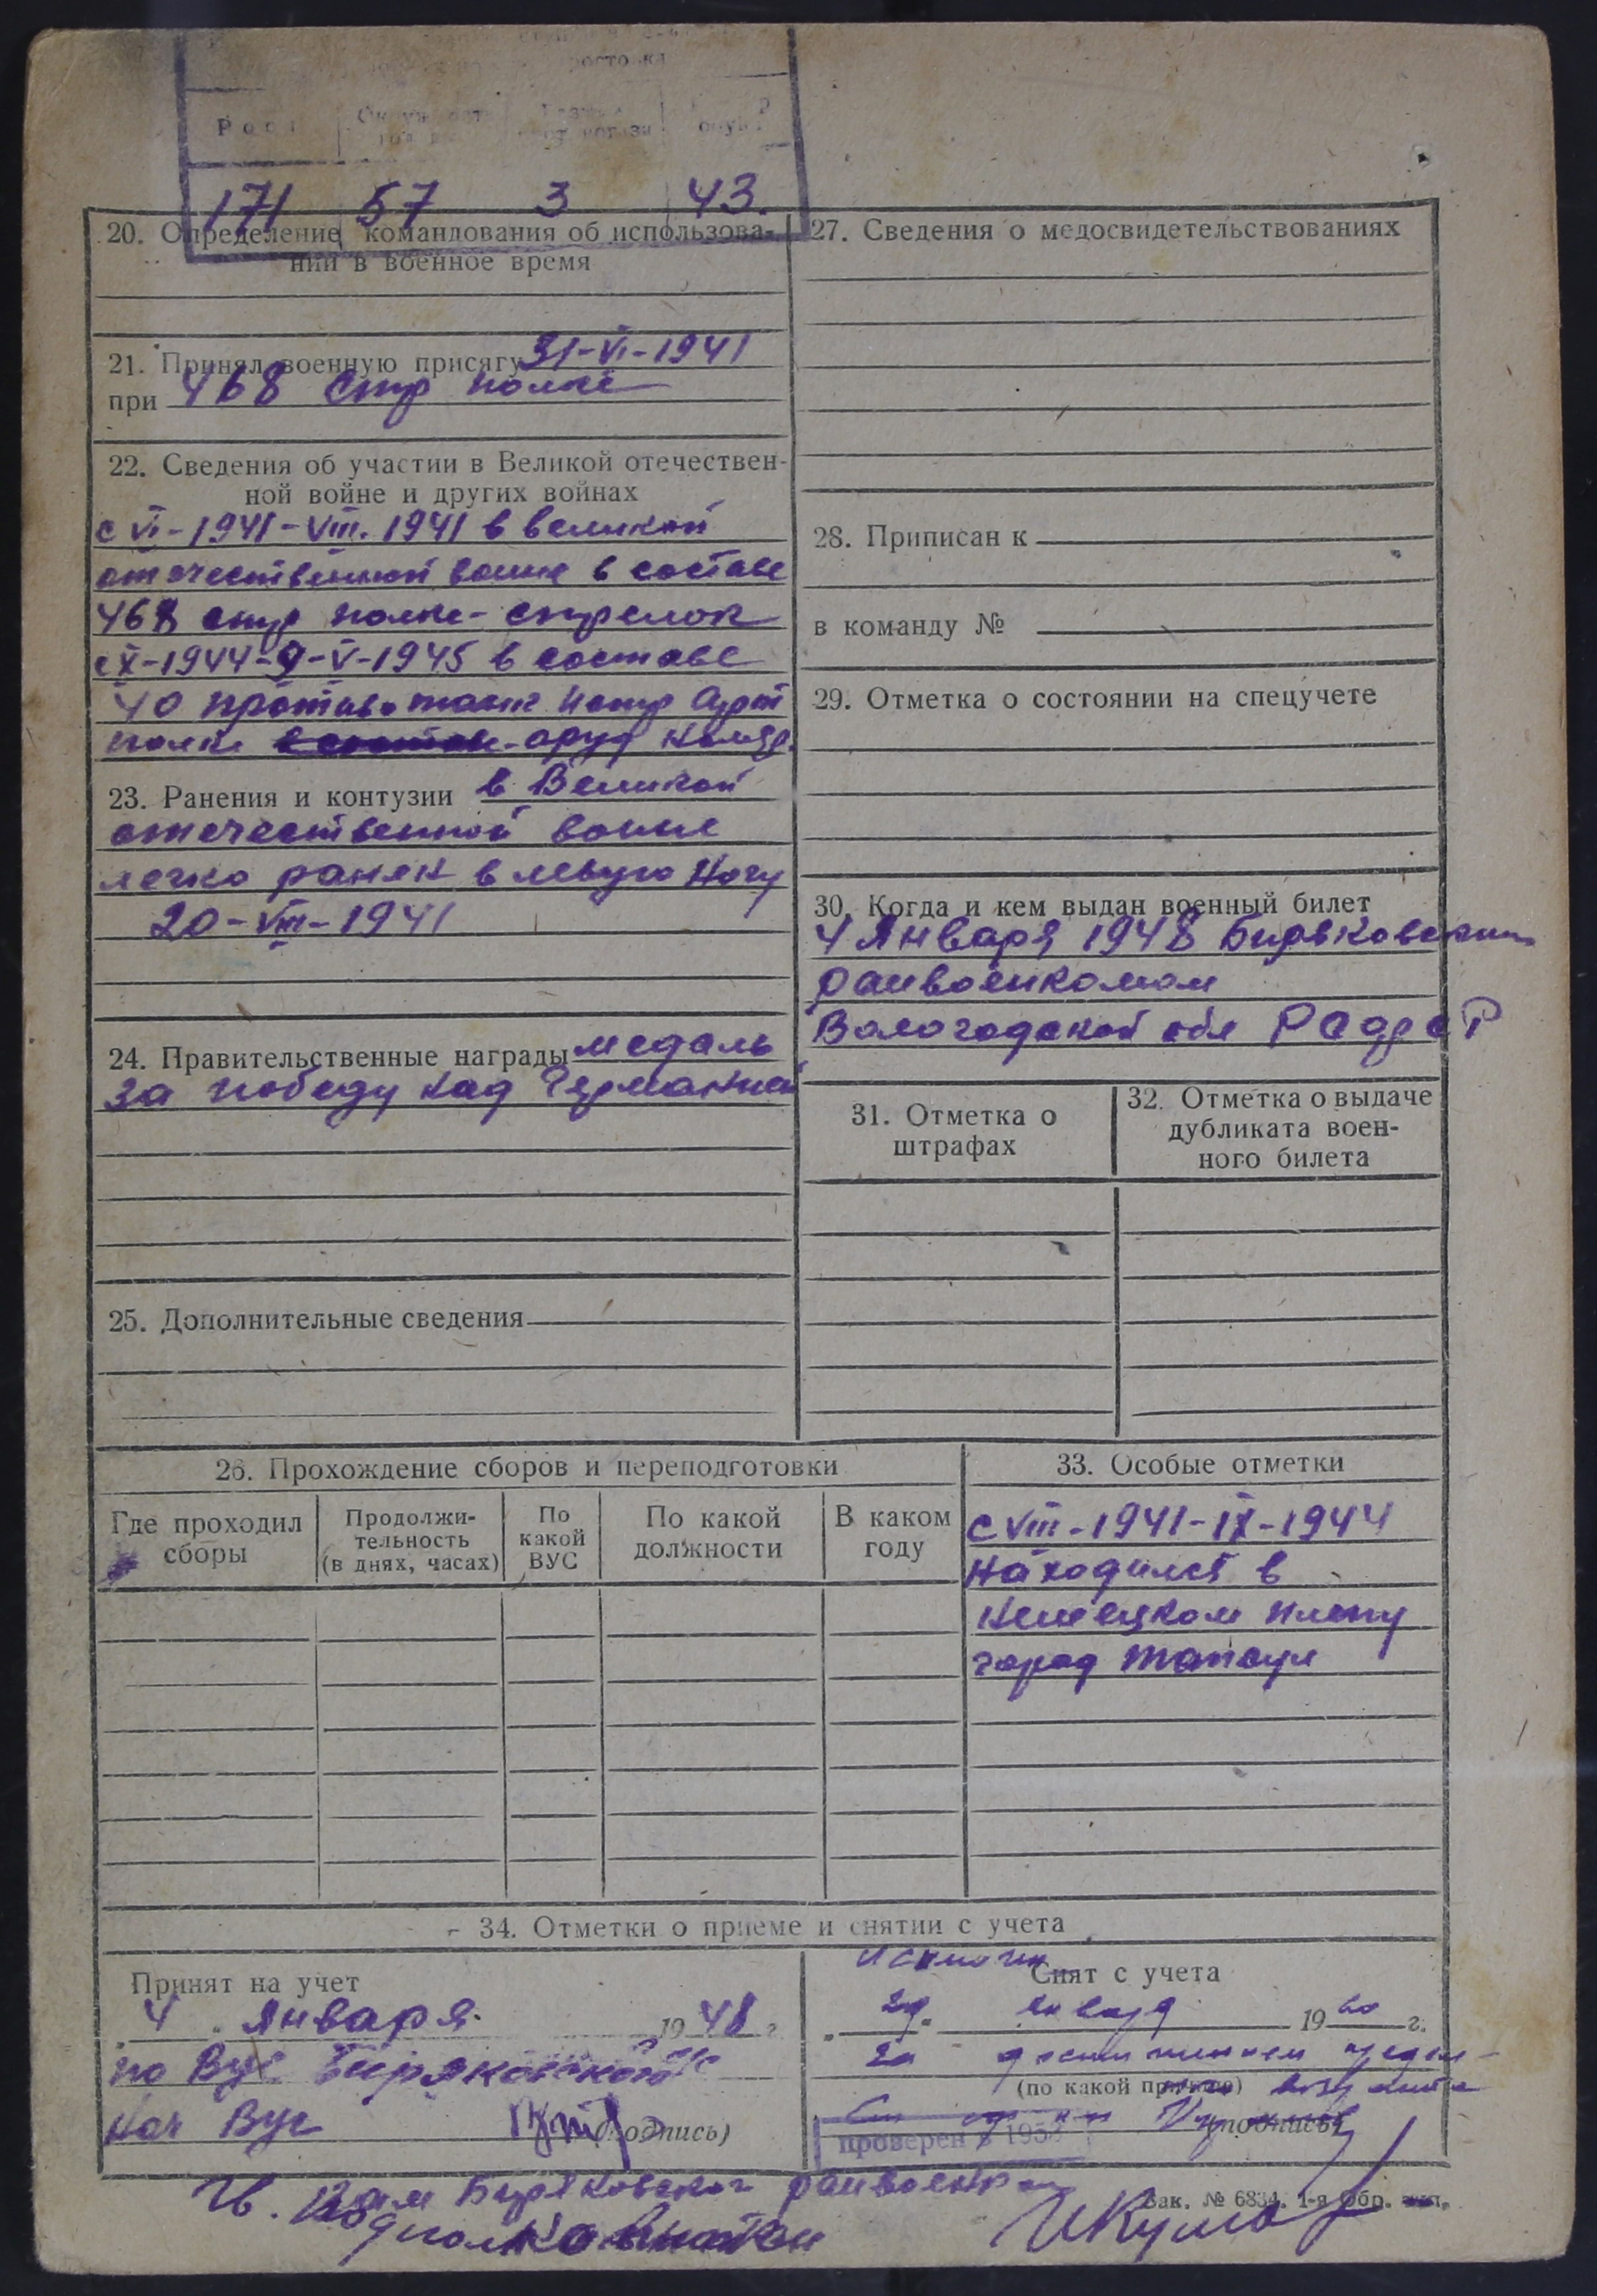 Рост
171 57 3 43.
20. Определение командования об использова-
нии в военное время
21. Принял военную присягу 31-VI-1941
при 468 стр полке
22. Сведения об участии в Великой отечествен-
ной войне и других войнах
с VI-1941-VIII. 1941 в великой
отечественной воине в составе
468 стр полке-стрелок
с X-1944-9-V-1945 в составе
40 противо танк истр Арт
полк оруд команд.
23. Ранения и контузии в Великой
отечественной воине
легко ранен в левую ногу
20-VIII-1941
24. Правительственные награды медаль
за победу над Германией
25. Дополнительные сведения
27. Сведения о медосвидетельствованиях
28. Приписан к
в команду №
29. Отметка о состоянии на спецучете
30. Когда и кем выдан военный билет
4 Января 1948 Биряковским
раивоенкомом
Вологодской обл РСФСР
31. Отметка о
штрафах
32. Отметка о выдаче
дубликата воен-
ного билета
26. Прохождение сборов и переподготовки
Где проходил
сборы
Продолжи-
тельность
(в днях, часах)
По
какой
ВУС
По какой
должности
В каком
году
33. Особые отметки
с VIII-1941-IX-1944
находился в
немецком плену
город
34. Отметки о приеме и снятии с учета
Принят на учет
„4„ Января. 1948 г.
по Вус Биряковского
нач Вус (подпись)
Исключен
Снят с учета
„ „ января 1960 г.
за достижением предел-
(по какой причине) возраста
(подпись)
проверен в 195
Зак. № 6834. 1-я Обр. тип.
Биряковского раивоенком
подполковник